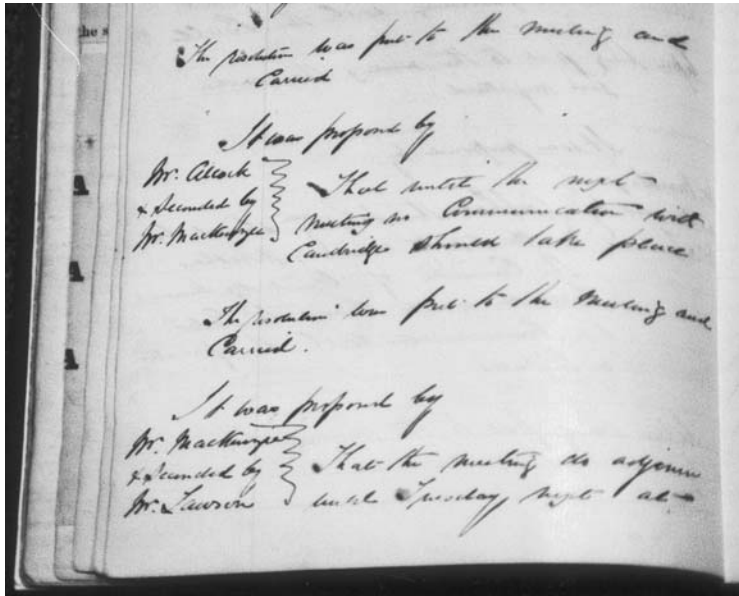 the s
The resolution was put to the meeting and
Carried
It was proposed by
Mr. Alcock
& Seconded by
Mr. Mackenzie
That until the next
meeting no Communication with
Cambridge should take place
The resolution was put to the Meeting and
Carried.
It was proposed by
Mr. Mackenzie
& Seconded by
Mr. Lawson
That the meeting do adjourn
until Tuesday next at
A
A
A